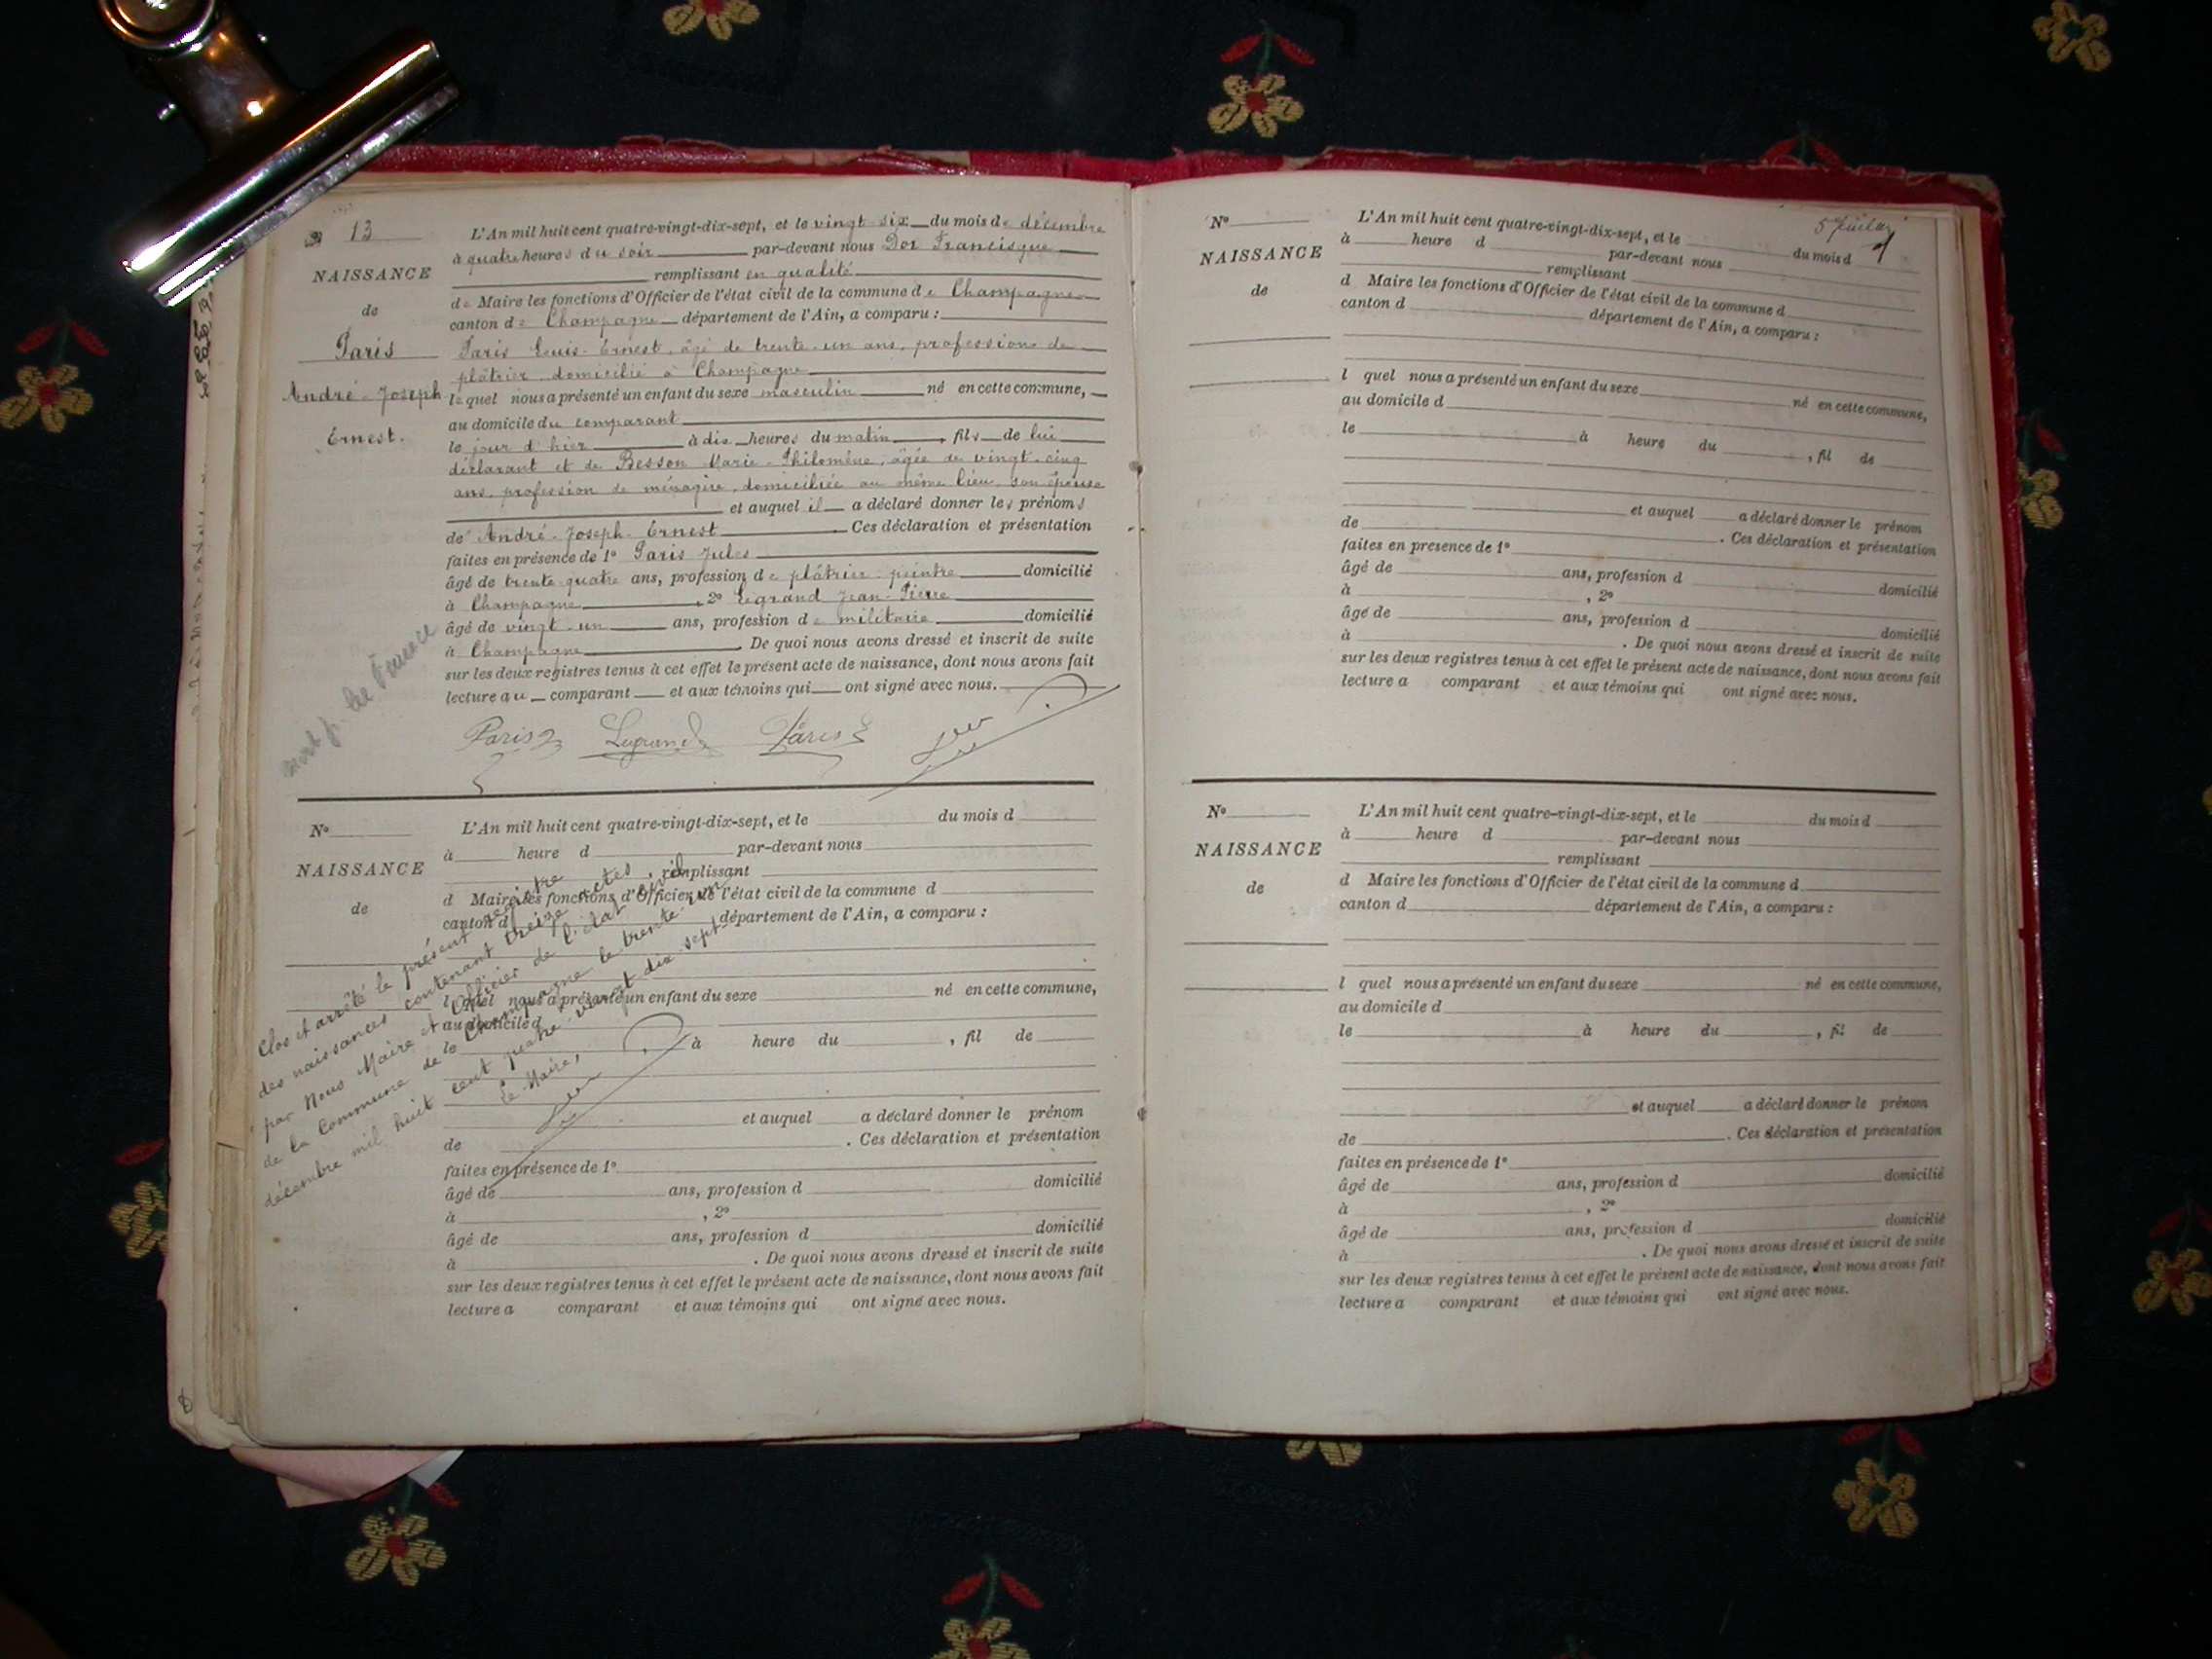 13
NAISSANCE
de
Paris
André-Joseph
Ernest.
L'An mil huit cent quatre-vingt-dix-sept, et le vingt-six du mois de décembre
à quatre heures du soir par-devant nous Dor Francisque
remplissant en qualité
de Maire les fonctions d'Officier de l'état civil de la commune de Champagne
canton de Champagne département de l'Ain, a comparu :
Paris Louis-Ernest, âgé de trente-un ans, profession de
plâtrier domicilié à Champagne
lequel nous a présenté un enfant du sexe masculin né en cette commune,
au domicile du comparant
le jour d'hier à dix heures du matin, fils de lui
déclarant et de Besson Marie-Philomène, âgée de vingt-cinq
ans, profession de ménagère, domiciliée au même lieu, son épouse
et auquel il a déclaré donner les prénoms
de André-Joseph-Ernest. Ces déclaration et présentation
faites en présence de 1º Paris Jules
âgé de trente-quatre ans, profession de plâtrier-peintre domicilié
à Champagne, 2º Legrand Jean-Pierre
âgé de vingt-un ans, profession de militaire domicilié
à Champagne. De quoi nous avons dressé et inscrit de suite
sur les deux registres tenus à cet effet le présent acte de naissance, dont nous avons fait
lecture au comparant et aux témoins qui ont signé avec nous.
mort p. la France
Paris Legrand Paris
Nº
NAISSANCE
de
L'An mil huit cent quatre-vingt-dix-sept, et le du mois d
à heure d par-devant nous
, remplissant
d Maire les fonctions d'Officier de l'état civil de la commune d
canton d département de l'Ain, a comparu :
l quel nous a présenté un enfant du sexe né en cette commune,
au domicile d
le à heure du , fil de
et auquel a déclaré donner le prénom
de . Ces déclaration et présentation
faites en présence de 1º
âgé de ans, profession d domicilié
à , 2º
âgé de ans, profession d domicilié
à . De quoi nous avons dressé et inscrit de suite
sur les deux registres tenus à cet effet le présent acte de naissance, dont nous avons fait
lecture a comparant et aux témoins qui ont signé avec nous.
Clos et arrêté le présent registre
des naissances contenant treize actes
par Nous Maire et Officier de l'état civil
de la Commune de Champagne le trente-un
décembre mil huit cent quatre-vingt-dix-sept
Le Maire,
Nº
NAISSANCE
de
L'An mil huit cent quatre-vingt-dix-sept, et le du mois d
à heure d par-devant nous
remplissant
d Maire les fonctions d'Officier de l'état civil de la commune d
canton d département de l'Ain, a comparu :
l quel nous a présenté un enfant du sexe né en cette commune,
au domicile d
le à heure du , fil de
et auquel a déclaré donner le prénom
de . Ces déclaration et présentation
faites en presence de 1º
âgé de ans, profession d domicilié
à , 2º
âgé de ans, profession d domicilié
à . De quoi nous avons dressé et inscrit de suite
sur les deux registres tenus à cet effet le présent acte de naissance, dont nous avons fait
lecture a comparant et aux témoins qui ont signé avec nous.
Nº
NAISSANCE
de
L'An mil huit cent quatre-vingt-dix-sept, et le du mois d
à heure d par-devant nous
remplissant
d Maire les fonctions d'Officier de l'état civil de la commune d
canton d département de l'Ain, a comparu :
l quel nous a présenté un enfant du sexe né en cette commune,
au domicile d
le à heure du , fil de
et auquel a déclaré donner le prénom
de . Ces déclaration et présentation
faites en présence de 1º
âgé de ans, profession d domicilié
à , 2º
âgé de ans, profession d domicilié
à . De quoi nous avons dressé et inscrit de suite
sur les deux registres tenus à cet effet le présent acte de naissance, dont nous avons fait
lecture a comparant et aux témoins qui ont signé avec nous.